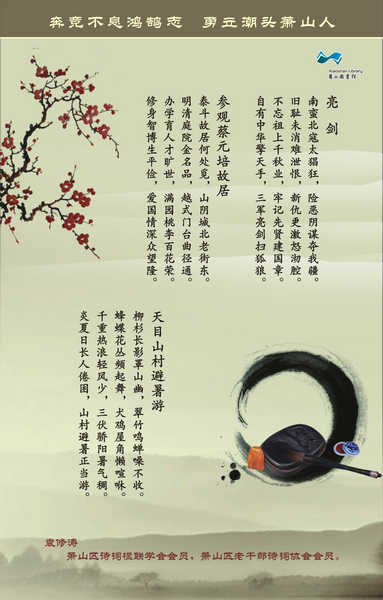 奔竞不息鸿鹄志 勇立潮头萧山人
Xiaoshan Library
萧山图书馆
亮剑
南蛮北寇太猖狂，险恶阴谋夺我疆。
旧耻未消难泄恨，新仇更激怒沏腔。
不忘祖上千秋业，牢记先贤建国章。
自有中华擎天手，三军亮剑扫狐狼。
参观蔡元培故居
泰斗故居何处觅，山阴城北老街东。
明清庭院金名品，越式门台曲径通。
办学育人才旷世，满园桃李百花荣。
修身智博生平俭，爱国情深众望隆。
天目山村避暑游
柳杉长影罩山幽，翠竹鸣蝉噪不收。
蜂蝶花丛频起舞，犬鸡屋角懒喧咻。
千重热浪轻风少，三伏骄阳暑气稠。
炎夏日长人倦困，山村避暑正当游。
袁修涛
萧山区诗词楹联学会会员，萧山区老干部诗词协会会员。